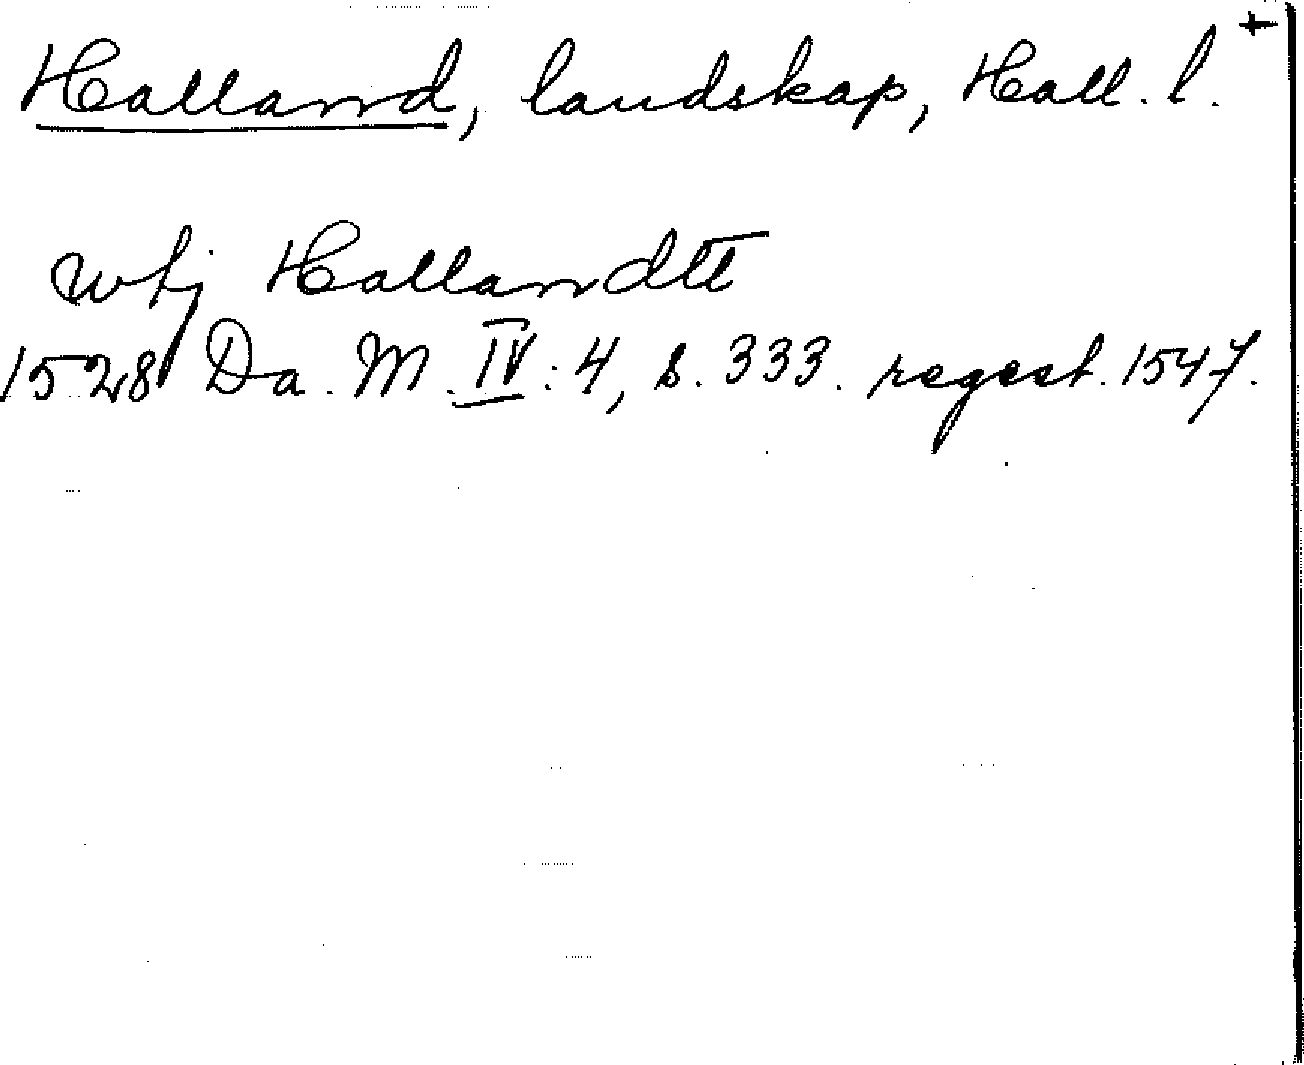 Halland, landskap, Hall. l. +
whj Hallandtt
1528 Da. M. IV: 4, s. 333. regest. 1547.